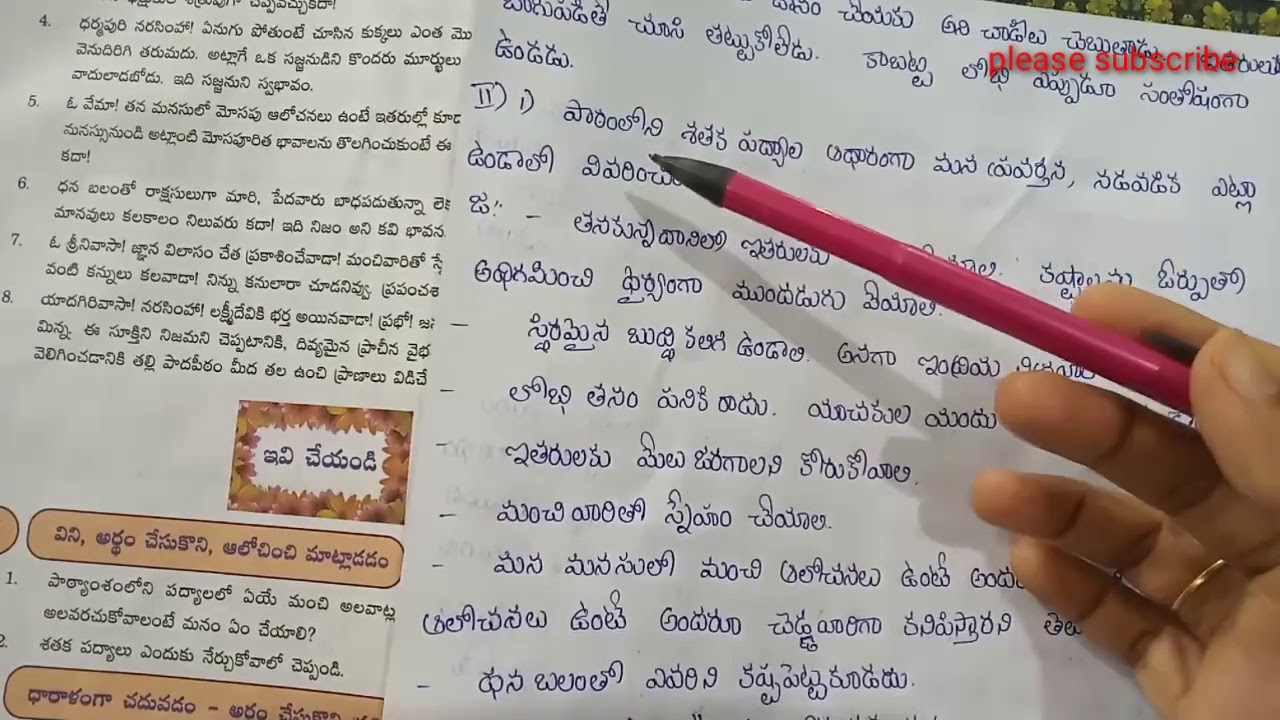 చెప్పవచ్చుకదా!
4. ధర్మపురి నరసింహా! ఏనుగు పోతుంటే చూసిన కుక్కలు ఎంత మొ
వెనుదిరిగి తరుమదు. అట్లాగే ఒక సజ్జనుడిని కొందరు మూర్ఖులు
వాదులాడబోదు. ఇది సజ్జనుని స్వభావం.
5. ఓ వేమా! తన మనసులో మోసపు ఆలోచనలు ఉంటే ఇతరుల్లో కూడ
మనస్సునుండి అట్లాంటి మోసపూరిత భావాలను తొలగించుకుంటే ఈ
కదా!
6. ధన బలంతో రాక్షసులుగా మారి, పేదవారు బాధపడుతున్నా లెక
మానవులు కలకాలం నిలువరు కదా! ఇది నిజం అని కవి భావన
7. ఓ శ్రీనివాసా! జ్ఞాన విలాసం చేత ప్రకాశించేవాడా! మంచివారితో స్నే
వంటి కన్నులు కలవాడా! నిన్ను కనులారా చూడనివ్వు. ప్రపంచశ
8. యాదగిరివాసా! నరసింహా! లక్ష్మీదేవికి భర్త అయినవాడా! ప్రభో! జ
మిన్న. ఈ సూక్తిని నిజమని చెప్పటానికి, దివ్యమైన ప్రాచీన వైభ
వెలిగించడానికి తల్లి పాదపీఠం మీద తల ఉంచి ప్రాణాలు విడిచే
ఇవి చేయండి
విని, అర్థం చేసుకొని, ఆలోచించి మాట్లాడడం
1. పాఠ్యాంశంలోని పద్యాలలో ఏయే మంచి అలవాట్ల
అలవరచుకోవాలంటే మనం ఏం చేయాలి?
2. శతక పద్యాలు ఎందుకు నేర్చుకోవాలో చెప్పండి.
ధారాళంగా చదువడం - అర్థం చేసుకొని
దానం చేయకు అని చాడీలు చెబుతాడు
please subscribe
చూసి తట్టుకోలేడు. కాబట్ట లోభి ఎప్పుడూ సంతోషంగా
ఉండడు.
II) i) పాఠంలోని శతక పద్యాల ఆధారంగా మన ప్రవర్తన, నడవడిక ఎట్లా
ఉండాలో వివరించు
జ:- - తనకున్నదానిలో ఇతరులకు కష్టాలను ఓర్పుతో
అధిగమించి ధైర్యంగా ముందడుగు వేయాలి.
— స్థిరమైన బుద్ధి కలిగి ఉండాలి. అనగా ఇంద్రియ
- లోభి తనం పనికి రాదు. యాచకుల యందు
- ఇతరులకు మేలు జరగాలని కోరుకోవాలి.
- మంచి వారితో స్నేహం చేయాలి.
- మన మనసులో మంచి ఆలోచనలు ఉంటే
ఆలోచనలు ఉంటే అందరూ చెడ్డవారిగా కనిపిస్తారని
- ధన బలంతో ఎవరిని కష్టపెట్టకూడదు.